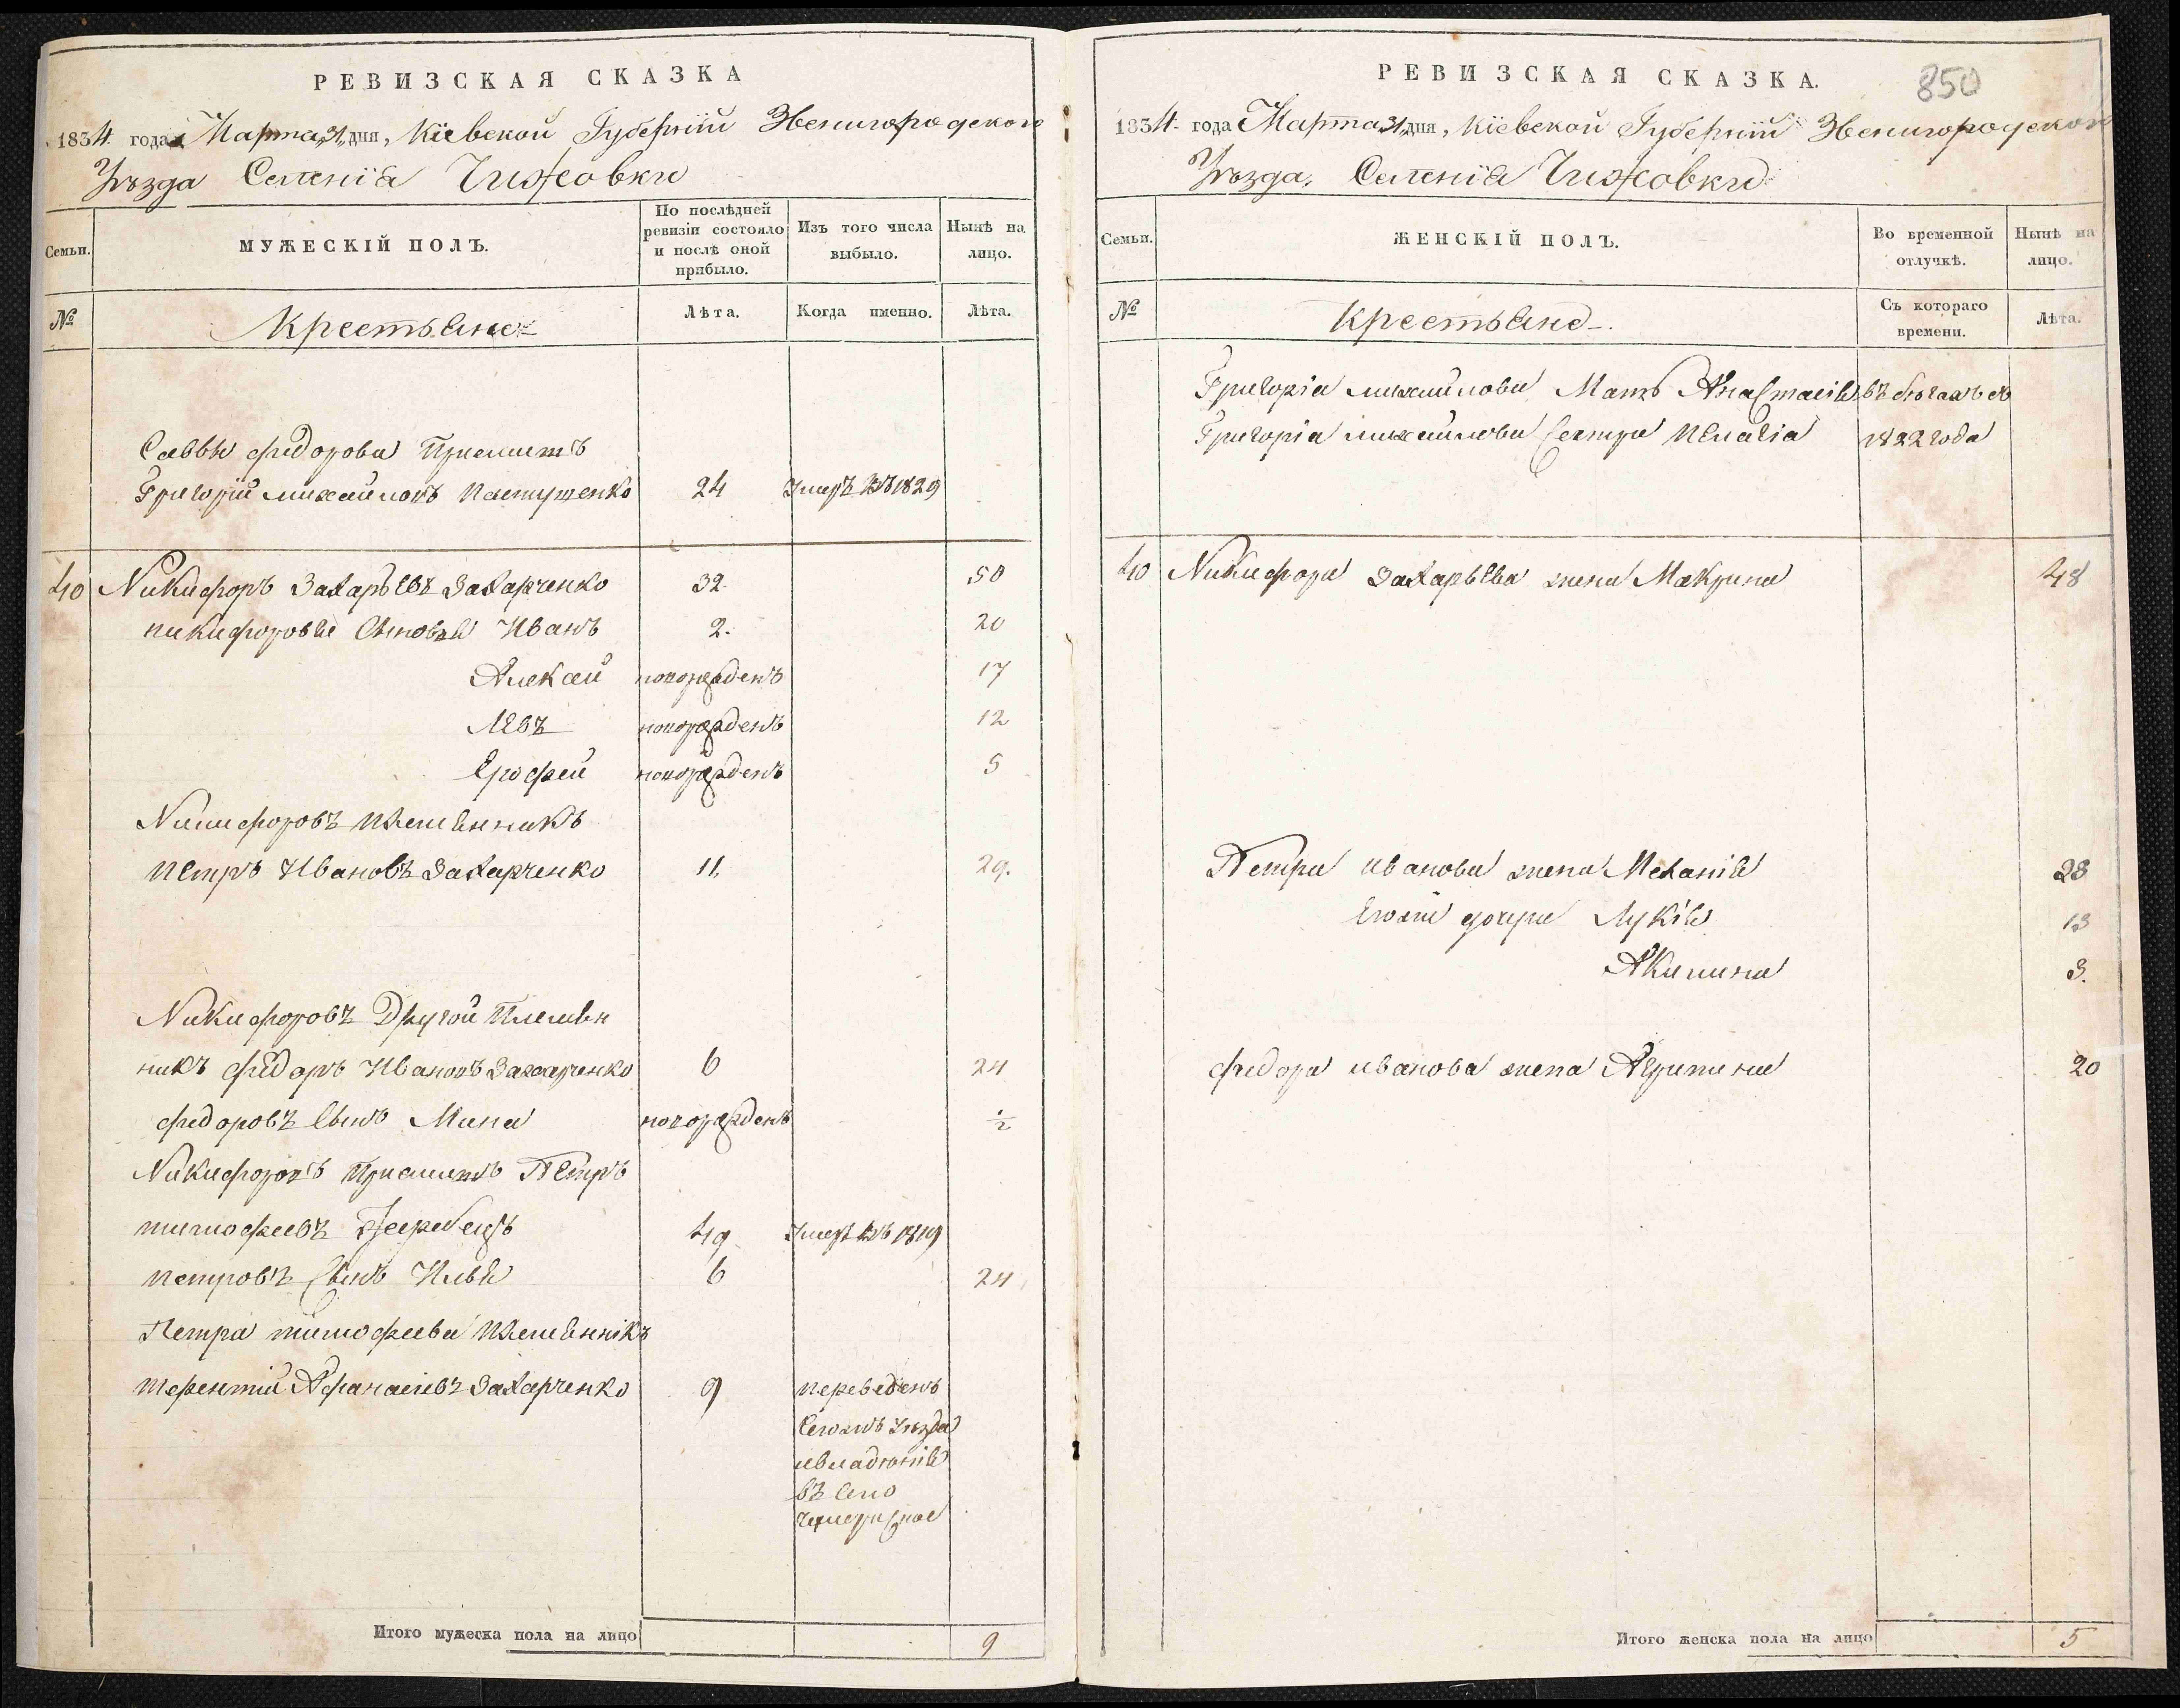 РЕВИЗСКАЯ СКАЗКА
1834 года Марта 31 дня, Кіевской Губерніи Звенигородскои
Уѣзда Селенія Чижовки
Семьи.
МУЖЕСКІЙ ПОЛЪ.
По послѣдней ревизіи состояло и послѣ оной прибыло.
Изъ того числа выбыло.
Нынѣ на лицо.
№
Крестьяне
Лѣта.
Когда именно.
Лѣта.
Саввы Федорова Приемишъ
Григорій Михаиловъ Пастушенко 24 Умеръ въ 1829
40 Никифоръ Захарьевъ Захарченко 32 50
Никифоровы Сыновья Иванъ 2. 20
Алексей новорожденъ 17
Левъ новорожденъ 12
Ерофей новорожденъ 5
Никифоровъ племянникъ
Петръ Ивановъ Захарченко 11 29.
Никифоровъ Другой Племян
никъ Федоръ Ивановъ Захарченко 6 24
Федоровъ Сынъ Мина новорожденъ ½
Никифоровъ Приемишъ Петръ
Тимофеевъ 49 Умеръ въ 1819
Петровъ Сынъ Илья 6 24
Петра Тимофеева племяннікъ
Терентій Афанасіевъ Захарченко 9 переведенъ
Сегожъ Уѣзда
въ Село
Итого мужеска пола на лицо 9
РЕВИЗСКАЯ СКАЗКА.
850
1834 года Марта 31 дня, Кіевской Губерніи Звенигородскои
Уѣзда, Селенія Чижовки
Семьи.
ЖЕНСКІЙ ПОЛЪ.
Во временной отлучкѣ.
Нынѣ на лицо.
№
Крестьяне.
Съ котораго времени.
Лѣта.
Григорія Михаилова Мать Анастасія въ бѣгахъ съ
Григорія Михаилова Сестра Пелагія 1822 года
40 Никифора Захарьева жена Макрина 48
Петра Иванова жена Меланія 28
Егоже дочери Лукія 13
Акилина 3.
Федора Иванова жена Агрипина 20
Итого женска пола на лицо 5